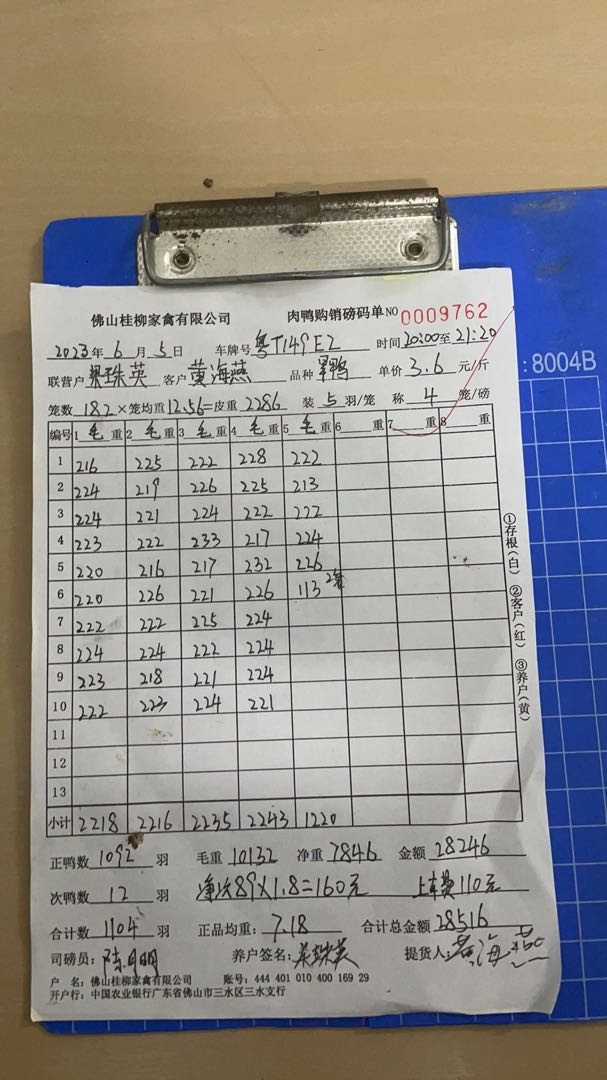 佛山桂柳家禽有限公司 肉鸭购销磅码单 NO 0009762
2023年 6月 5日 车牌号 粤T149E2 时间 20:00至21:20
联营户 梁珠英 客户 黄海燕 品种 单价 3.6 元/斤
笼数 182 ×笼均重 12.56=皮重 2286 装 5 羽/笼 称 4 笼/磅
编号 1 毛重 2 毛重 3 毛重 4 毛重 5 毛重 6 重 7 重 8 重
1 216 225 222 228 222
2 224 219 226 225 213
3 224 221 224 222 222
4 223 222 233 217 224
5 220 216 217 232 226
6 220 226 221 226 113 2笼
7 222 222 225 224
8 224 224 222 224
9 223 218 221 224
10 222 223 224 221
11
12
13
小计 2218 2216 2235 2243 1220
正鸭数 1092 羽 毛重 10132 净重 7846 金额 28246
次鸭数 12 羽 净次89×1.8=160元 上车费110元
合计数 1104 羽 正品均重: 7.18 合计总金额 28516
司磅员: 陈明明 养户签名: 梁珠英 提货人: 黄海燕
户 名: 佛山桂柳家禽有限公司 账号: 444 401 010 400 169 29
开户行: 中国农业银行广东省佛山市三水区三水支行
①存根(白) ②客户(红) ③养户(黄)
:8004B